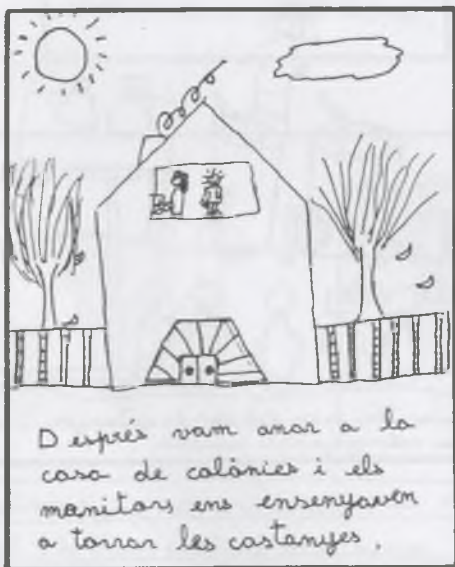 Després vam anar a la
casa de colònies i els
monitors ens ensenyaven
a torrar les castanyes.